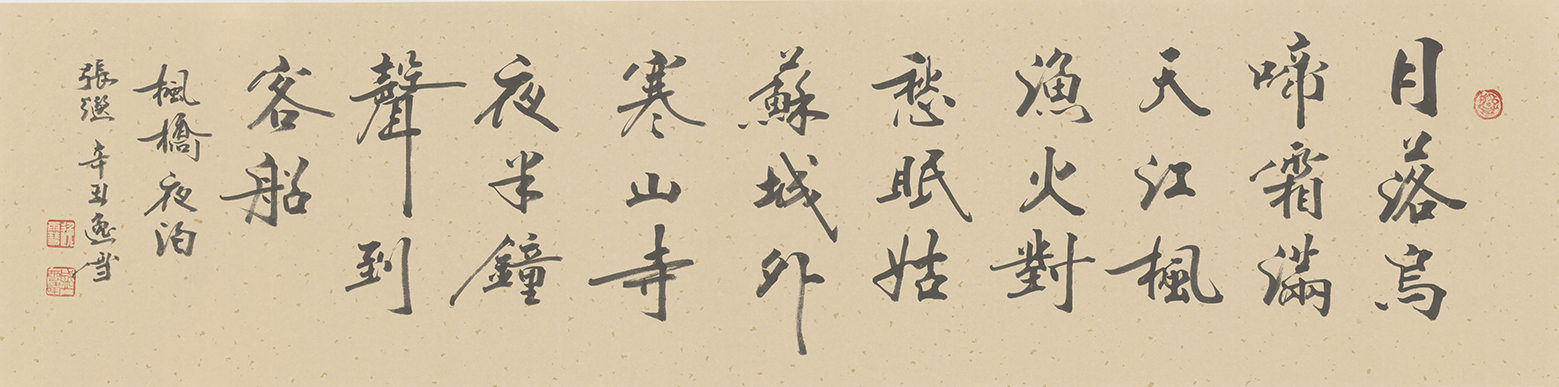 月落烏
啼霜滿
天江楓
漁火對
愁眠姑
蘇城外
寒山寺
夜半鐘
聲到
客船
楓橋夜泊
張繼 辛丑逸雪